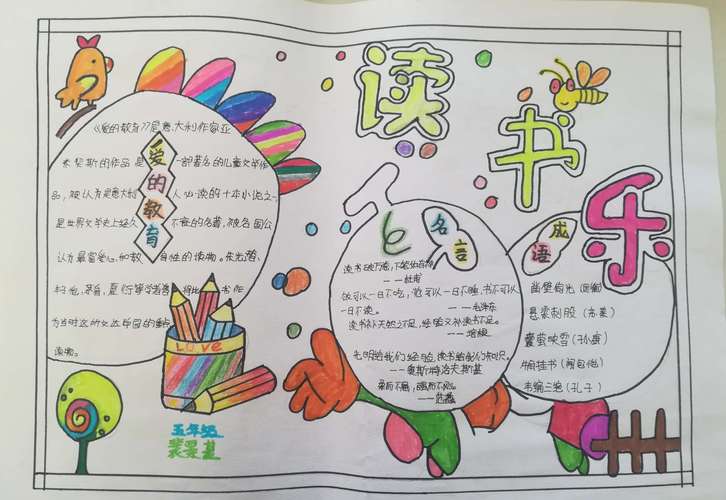 读书乐
《爱的教育》是意大利作家亚
米契斯的作品是一部著名的儿童文学作
品,被认为是意大利人必读的十本小说之一,
是世界文学史上经久不衰的名著,被各国公
认为最富爱心,和教育性的读物。
为当时的立达学园的重点
读物。
爱的教育
LOVE
五年级
名言
读书破万卷,
——杜甫
饭可以一日不吃,觉可以一日不睡,书不可以
一日不读。——毛泽东
读书补天然之不足,经验又补读书不足。
——培根
——奥斯特洛夫斯基
成语
凿壁偷光(匡衡)
悬梁刺股(
囊萤映雪(孙康)
牛角挂书(
韦编三绝(孔子)